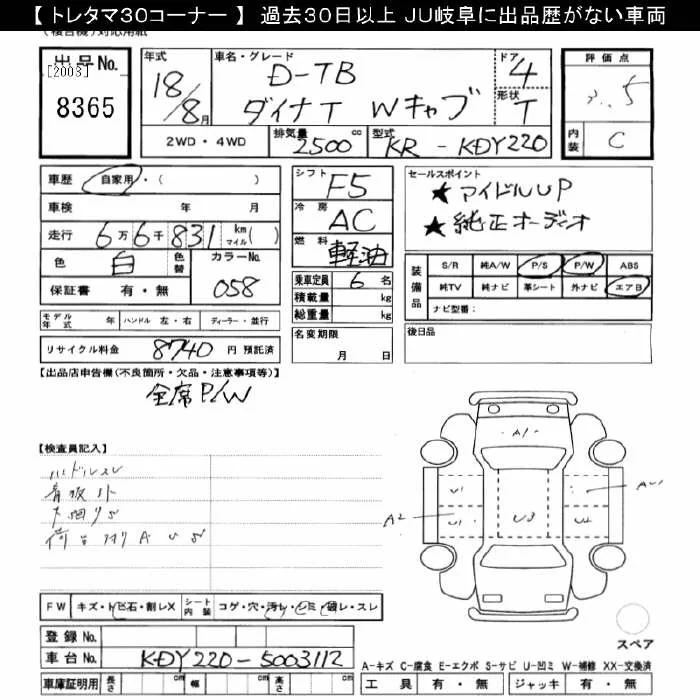 【 トレタマ３０コーナー 】 過去３０日以上 ＪＵ岐阜に出品歴がない車両
出品No.
[2003]
8365
年式 18/8月
車名・グレード D-TB ダイナT Wキャブ
ドア 4
形状 T
2WD・4WD
排気量 2500 cc
型式 KR-KDY220
評価点
内装 C
車歴 自家用・( )
車検 年 月
走行 6万6千831 km マイル( )
色 白
色替
カラーNo. 058
保証書 有・無
モデル年式 年 ハンドル 左・右 ディーラー・並行
リサイクル料金 8740 円 預託済
シフト F5
冷房 AC
燃料 軽油
乗車定員 6 名
積載量 kg
総重量 kg
名変期限
月 日
セールスポイント
★ アイドルUP
★ 純正オーディオ
装備品
S/R 純A/W P/S P/W ABS
純TV 純ナビ 革シート 外ナビ エアB
ナビ型番:
後日品
【出品店申告欄(不良箇所・欠品・注意事項等)】
全席P/W
【検査員記入】
ハンドルスレ
A1
U1
A2
U1
U3
U2
AU1
FW キズ・トビ石・割レX シート内装 コゲ・穴・汚レ・シミ・破レ・スレ
登録No.
車台No. KDY220-5003112
車庫証明用 長さ cm 幅 cm 高さ cm
スペア
A-キズ C-腐食 E-エクボ S-サビ U-凹ミ W-補修 XX-交換済
工具 有・無 ジャッキ 有・無